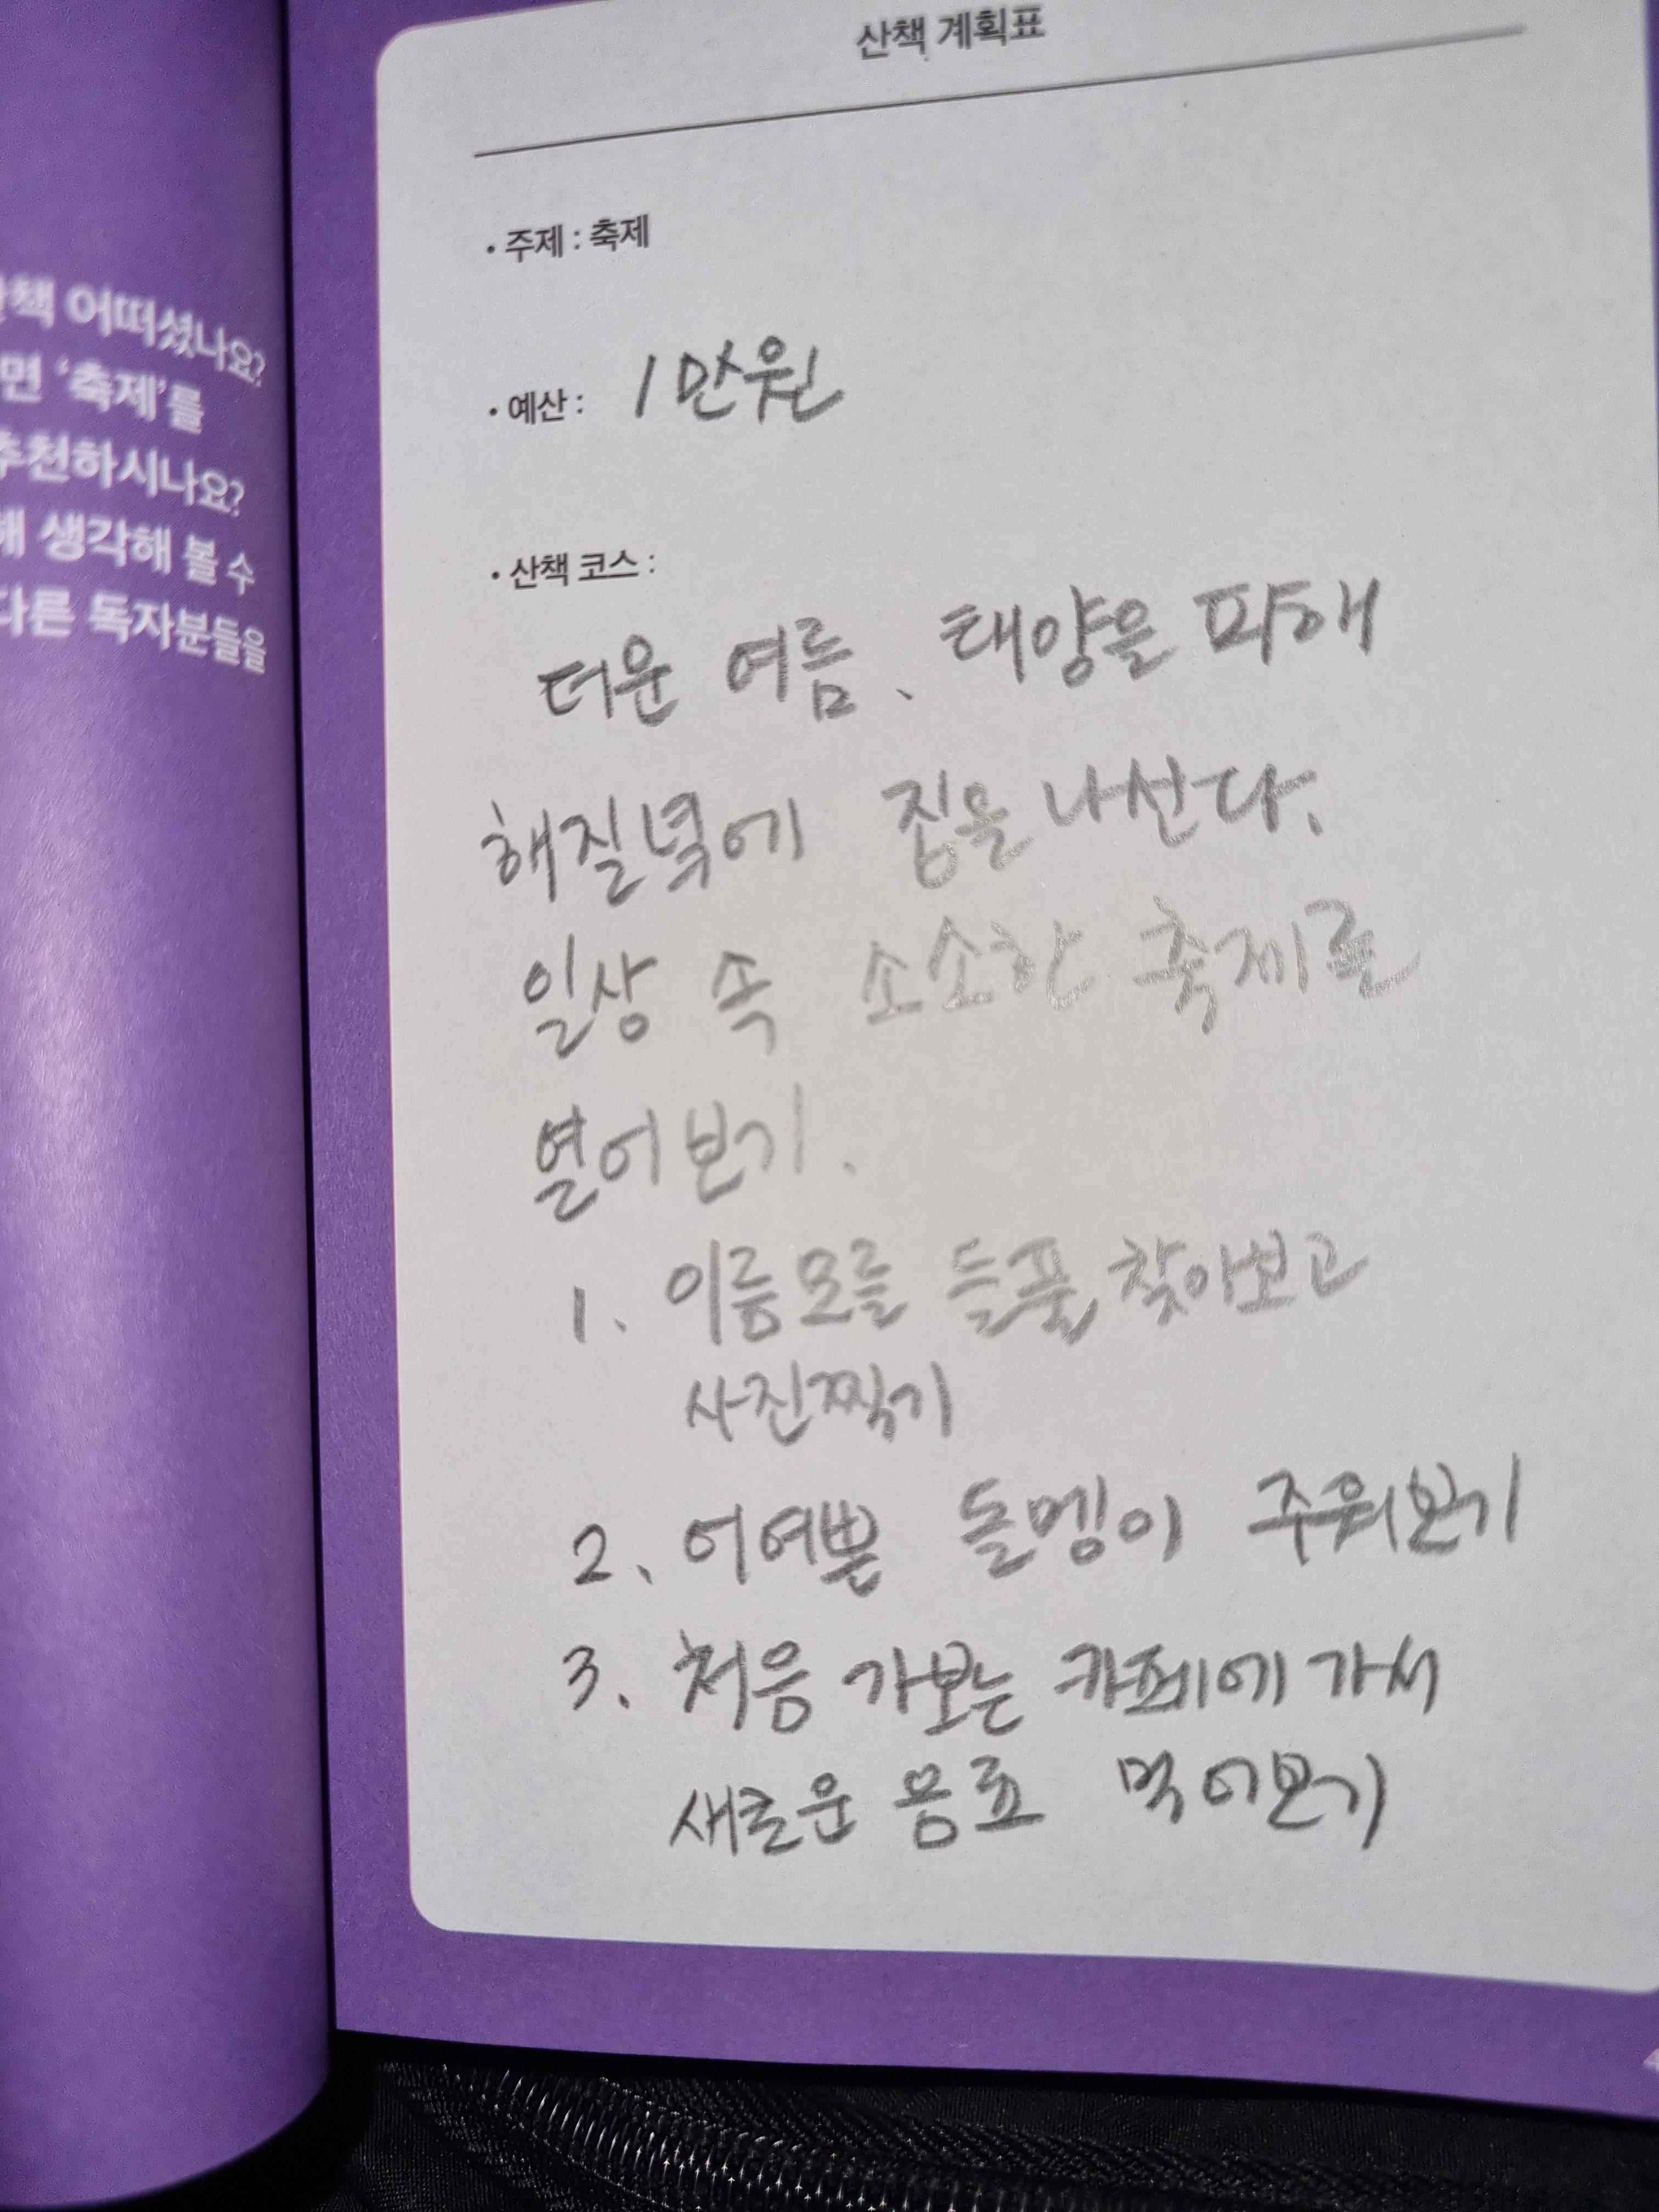 어떠셨나요?
면 '축제'를
추천하시나요?
해 생각해 볼 수
다른 독자분들을
산책 계획표
• 주제 : 축제
• 예산 : 1만원
• 산책 코스 :
더운 여름, 태양을 피해
해질녘에 집을 나선다.
일상 속 소소한 축제를
열어보기.
1. 이름모를 들풀 찾아보고
사진찍기
2. 어여쁜 돌멩이 주워보기
3. 처음 가보는 카페에 가서
새로운 음료 먹어보기